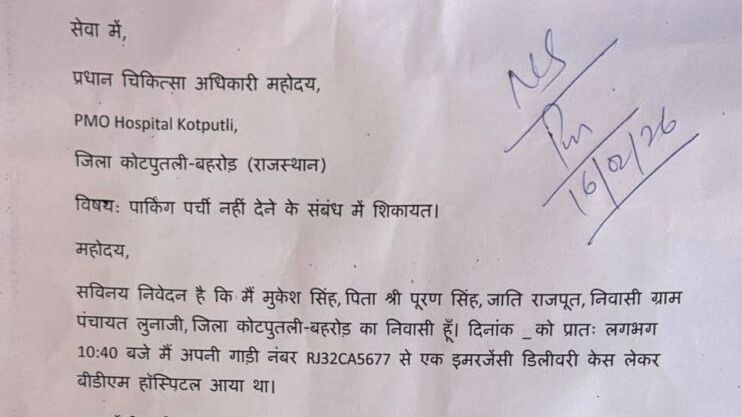 सेवा में,
प्रधान चिकित्सा अधिकारी महोदय,
PMO Hospital Kotputli,
जिला कोटपुतली-बहरोड़ (राजस्थान)
विषयः पार्किंग पर्ची नहीं देने के संबंध में शिकायत।
महोदय,
सविनय निवेदन है कि मैं मुकेश सिंह, पिता श्री पूरण सिंह, जाति राजपूत, निवासी ग्राम
पंचायत लुनाजी, जिला कोटपुतली-बहरोड़ का निवासी हूँ। दिनांक _ को प्रातः लगभग
10:40 बजे मैं अपनी गाड़ी नंबर RJ32CA5677 से एक इमरजेंसी डिलीवरी केस लेकर
बीडीएम हॉस्पिटल आया था।
16/02/26